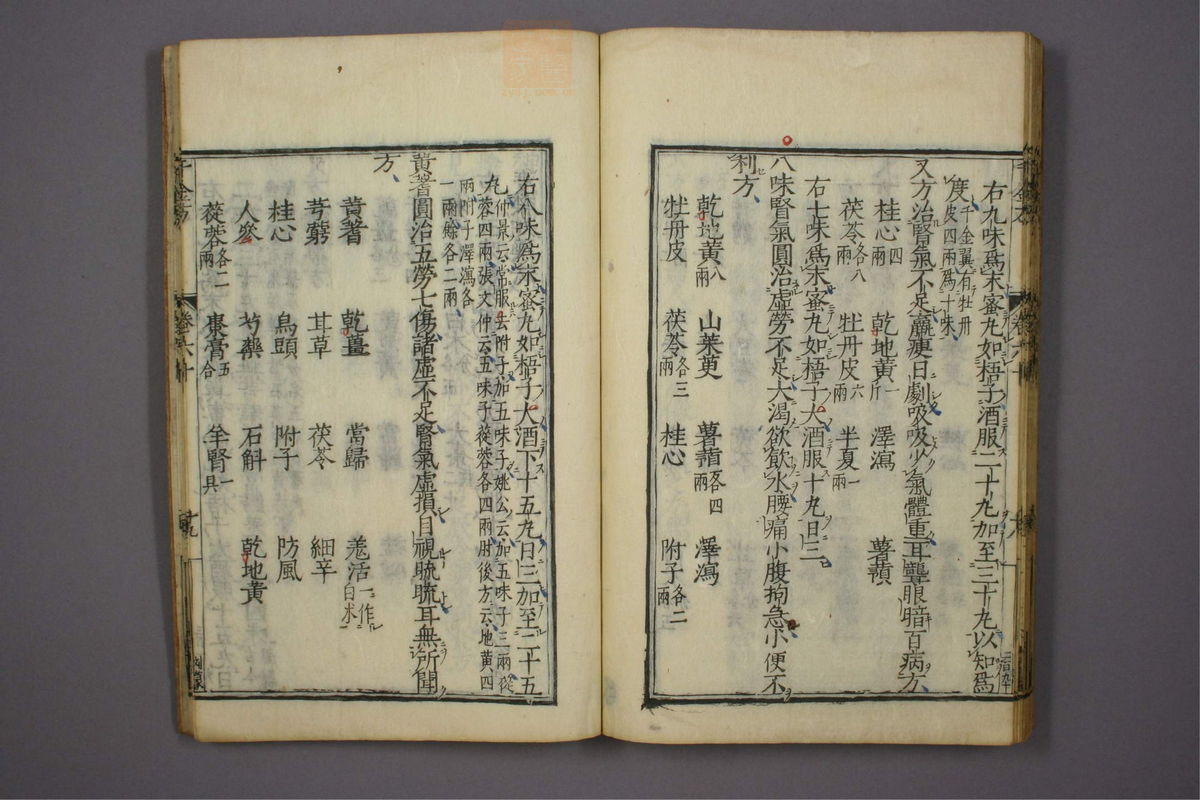 右九味爲末蜜丸如梧子酒服二十丸加至三十丸以知爲
度千金翼有牡丹皮四兩爲十味
又方治腎氣不足羸瘦日劇吸吸少氣體重耳聾眼暗百病方
桂心四兩 乾地黄一斤 澤瀉 薯蕷
茯苓各八兩 牡丹皮六兩 半夏一兩
右七味爲末蜜丸如梧子大酒服十丸日三
八味腎氣圓治虚勞不足大渴欲飲水腰痛小腹拘急小便不
利方
乾地黄八兩 山茱萸 薯蕷各四兩 澤瀉
牡丹皮 茯苓各三兩 桂心 附子各二兩
右八味爲末蜜丸如梧子大酒下十五丸日三加至二十五
丸仲景云常服去附子加五味子姚公云加五味子三兩蓯
蓉四兩張文仲云五味子蓯蓉各四兩肘後方云地黄四
兩附子澤瀉各
一兩餘各二兩
黄耆圓治五勞七傷諸虚不足腎氣虚損目視䀮䀮耳無所聞
方
黄耆 乾薑 當歸 羌活一作白朮
芎藭 甘草 茯苓 細辛
桂心 烏頭 附子 防風
人參 芍藥 石斛 乾地黄
蓯蓉各二兩 棗膏五合 羊腎一具